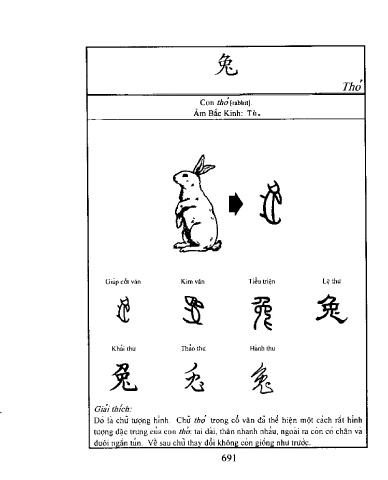 兔
Thỏ
Con thỏ [rabbit].
Âm Bắc Kinh: Tù.
Giáp cốt văn Kim văn Tiểu triện Lệ thư
兔
Khải thư Thảo thư Hành thư
兔 兔
Giải thích:
Đó là chữ tượng hình. Chữ thỏ trong cổ văn đã thể hiện một cách rất hình
tượng đặc trưng của con thỏ: tai dài, thân nhanh nhẩu, ngoài ra còn có chân và
đuôi ngắn tủn. Về sau chữ thay đổi không còn giống như trước.
691